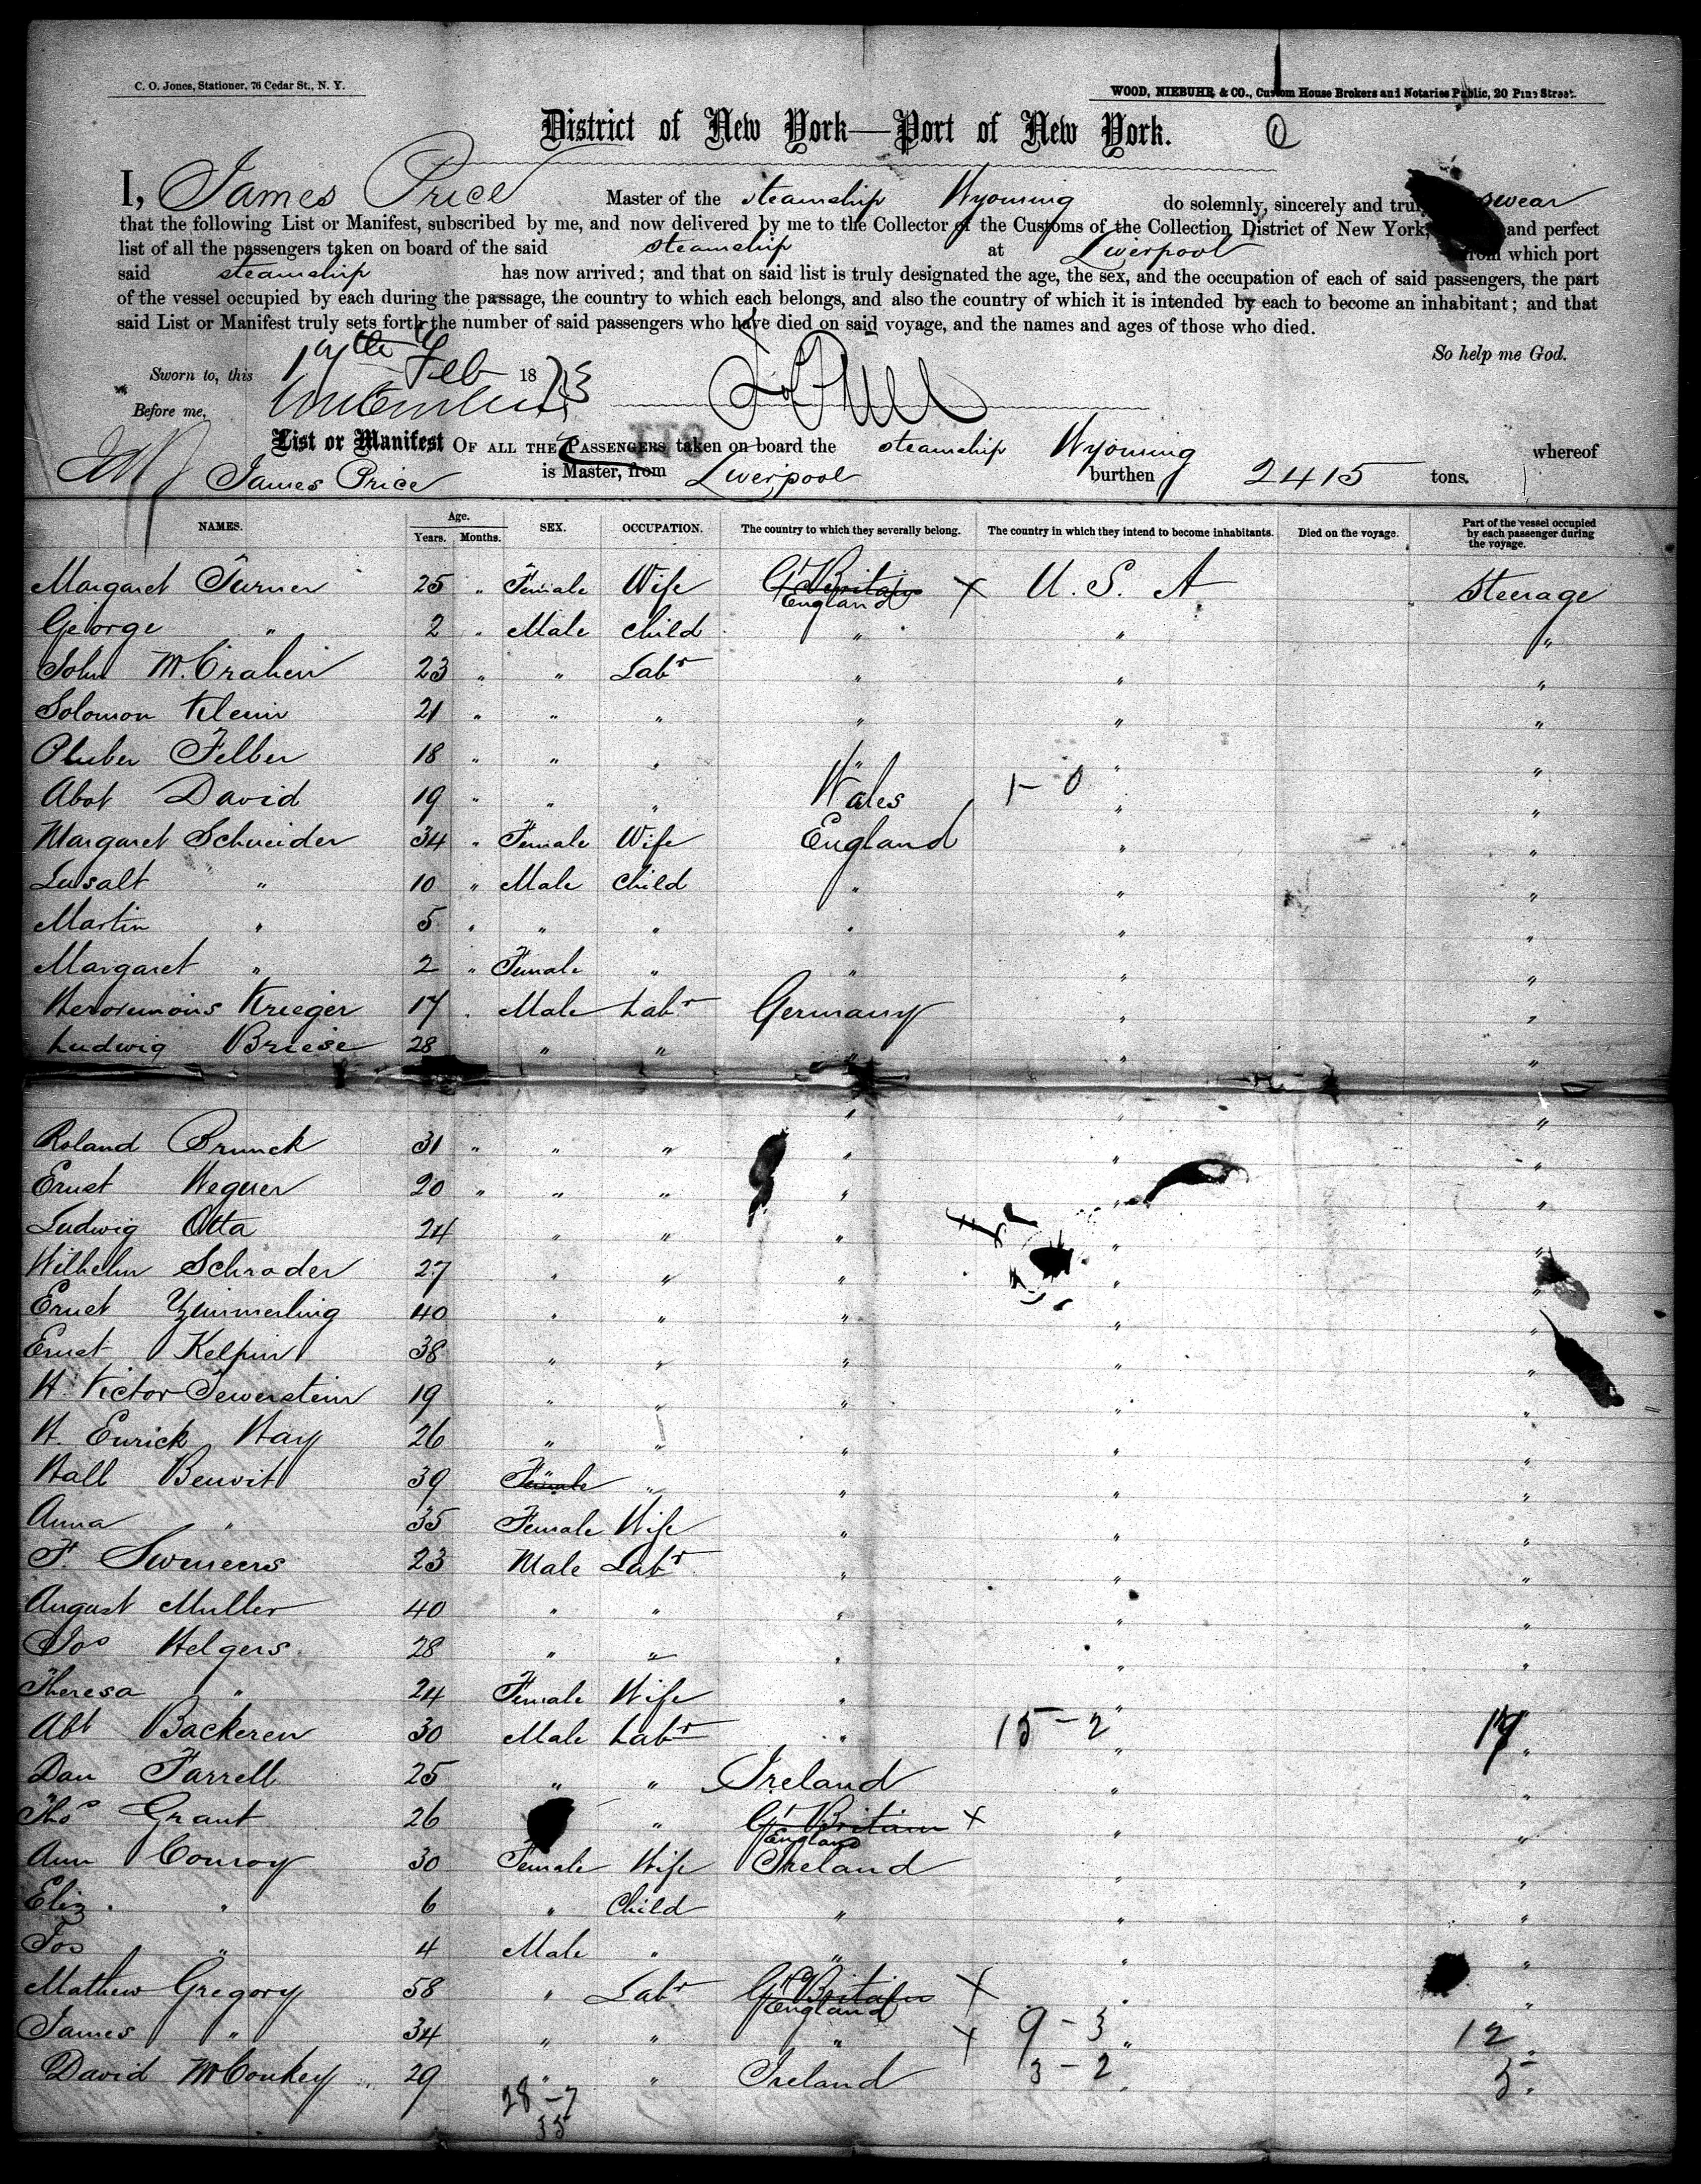 C. O. Jones, Stationer, 76 Cedar St., N. Y.
WOOD, NIEBUHR & CO., Custom House Brokers and Notaries Public, 20 Pine Street.
District of New York—Port of New York.
I, James Price Master of the steamship Wyoming do solemnly, sincerely and truly swear
that the following List or Manifest, subscribed by me, and now delivered by me to the Collector of the Customs of the Collection District of New York, and perfect
list of all the passengers taken on board of the said steamship at Liverpool from which port
said steamship has now arrived; and that on said list is truly designated the age, the sex, and the occupation of each of said passengers, the part
of the vessel occupied by each during the passage, the country to which each belongs, and also the country of which it is intended by each to become an inhabitant; and that
said List or Manifest truly sets forth the number of said passengers who have died on said voyage, and the names and ages of those who died.
So help me God.
Sworn to, this 17th Feb 1873
Before me,
List or Manifest OF ALL THE PASSENGERS taken on board the steamship Wyoming whereof
James Price is Master, from Liverpool burthen 2415 tons.
NAMES. Age. Years. Months. SEX. OCCUPATION. The country to which they severally belong. The country in which they intend to become inhabitants. Died on the voyage. Part of the vessel occupied by each passenger during the voyage.
Margaret Turner 25 " Female Wife Gt Britain England X U. S. A Steerage
George " 2 " Male Child " " "
John McCrahen 23 " " Labr " " "
Solomon Klein 21 " " " " " "
Felber 18 " " " " " "
Abot David 19 " " " Wales 1-0 " "
Margaret Schneider 34 " Female Wife England " "
Lusalt " 10 " Male Child " " "
Martin " 5 " " " " " "
Margaret " 2 " Female " " " "
Krieger 17 " Male Labr Germany " "
Ludwig Briese 28 " " " " "
Roland Brunck 31 " " " " " "
Ernst Wegner 20 " " " " " "
Ludwig Otta 24 " " " " "
Wilhelm Schroder 27 " " " " "
Ernst Zimmerling 40 " " " " "
Ernst Kelpin 38 " " " " "
H. Victor Tewerstein 19 " " " " "
H. Enrick Hay 26 " " " " "
Hall Benoit 39 Female " " " "
Anna " 35 Female Wife " " "
F. 23 Male Labr " " "
August Muller 40 " " " " "
Jos Helgers 28 " " " " "
Theresa " 24 Female Wife " " "
Abt Backeren 30 Male Labr " 15-2 " 17 "
Dan Farrell 25 " " Ireland " "
Thos Grant 26 " Gt Britain England X " "
Ann Conroy 30 Female Wife Ireland " "
Eliz. " 6 " Child " " "
Jos " 4 Male " " " "
Mathew Gregory 58 " Labr Gt Britain England X " "
James " 34 " " " X 9-3 " 12 "
David McConkey 29 " " Ireland 3-2 " 5 "
28-7
35